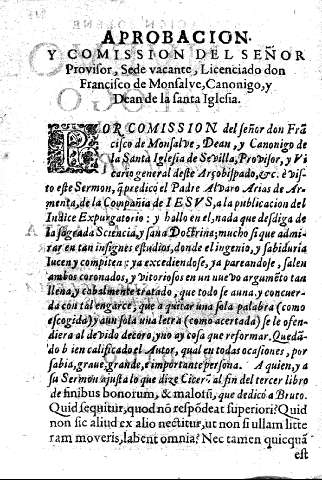 APROBACION
Y COMISSION DEL SEÑOR
Provisor, Sede vacante, Licenciado don
Francisco de Monsalve, Canonigo, y
Dean de la santa Iglesia.
POR COMISSION del señor don Frã
cisco de Monsalve, Dean, y Canonigo de
la Santa Iglesia de Sevilla, Provisor, y Vi
cario general deste Arçobispado, &c. è vis
to este Sermon, q̃ predicò el Padre Alvaro Arias de Ar-
menta, de la Compañia de IESVS, a la publicacion del
Indice Expurgatorio: y hallo en el, nada que desdiga de
la sagrada Sciencia, y sana Doctrina; mucho si que admi-
rar en tan insignes estudios, donde el ingenio, y sabiduria
lucen y compiten: ya excediendose, ya pareandose, salen
ambos coronados, y vitoriosos en un nuevo argumẽto tan
llena, y cabalmente tratado, que todo se auna, y concuer-
da con tal engarce, que a quitar una sola palabra (como
escogida) y aun sola una letra (como acertada) se le ofen-
diera al devido decoro, y no ay cosa que reformar. Quedã-
do bien calificado el Autor, qual en todas ocasiones, por
sabia, grave, grande, è importante persona. A quien, y a
su Sermon ajusta lo que dize Cicerõ al fin del tercer libro
de finibus bonorum, & malorũ, que dedicò a Bruto.
Quid sequitur, quod nõ respõdeat superiori? Quid
non sic aliud ex alio nectitur, ut non si ullam litte
ram moveris, labent omnia? Nec tamen quicquã
est